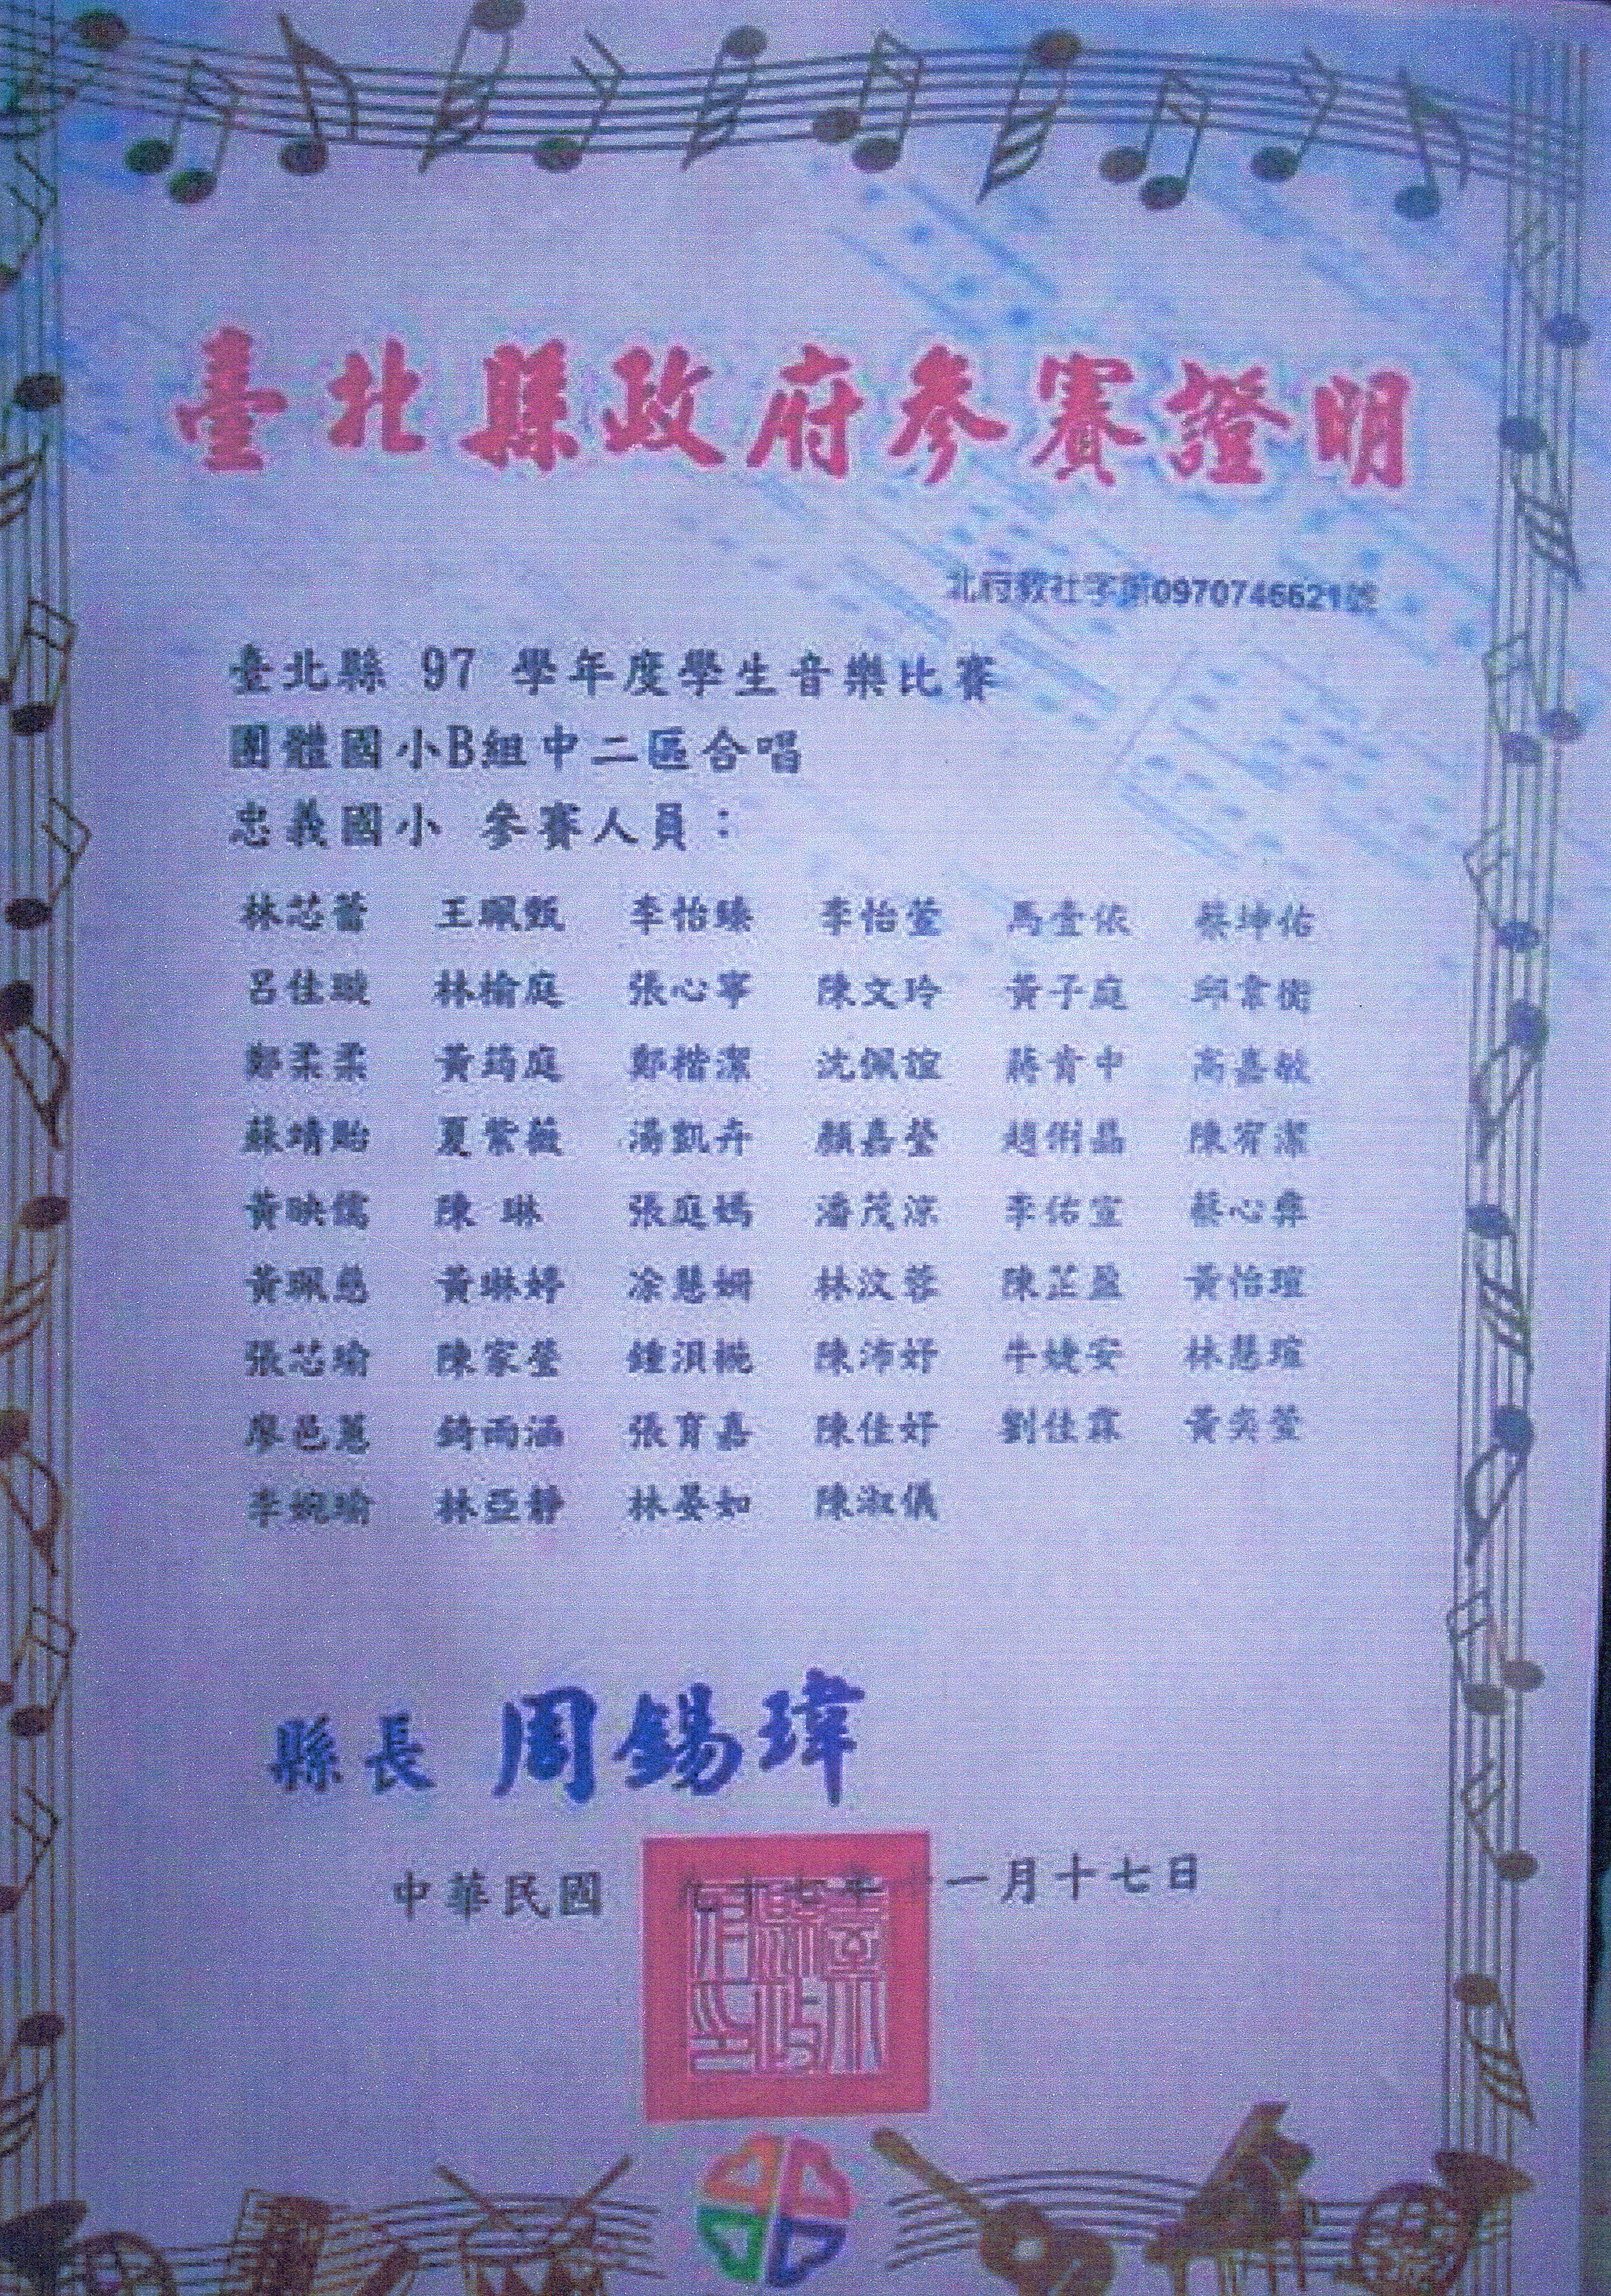 臺北縣政府參賽證明
北府教社字第0970746621號
臺北縣 97 學年度學生音樂比賽
團體國小B組中二區合唱
忠義國小 參賽人員：
林芯蕾 王珮甄 李怡臻 李怡萱 馬壹依 蔡坤佑
呂佳璇 林榆庭 張心寧 陳文玲 黃子庭 邱韋衡
鄭柔柔 黃筠庭 鄭楷潔 沈佩誼 蔣肯中 高嘉敏
蘇靖貽 夏紫薇 湯凱卉 顏嘉瑩 陳宥潔
黃映儒 陳 琳 張庭嫣 潘茂淙 李佑宣 蔡心彝
黃珮慈 黃琳婷 凃慧姍 林汶蓉 陳芷盈 黃怡瑄
張芯瑜 陳家瑩 陳沛妤 牛婕安 林慧瑄
廖邑蕙 張育嘉 陳佳妤 劉佳霖 黃奕萱
李婉瑜 林亞靜 林晏如 陳淑儀
縣長 周錫瑋
中華民國 九十七年十一月十七日